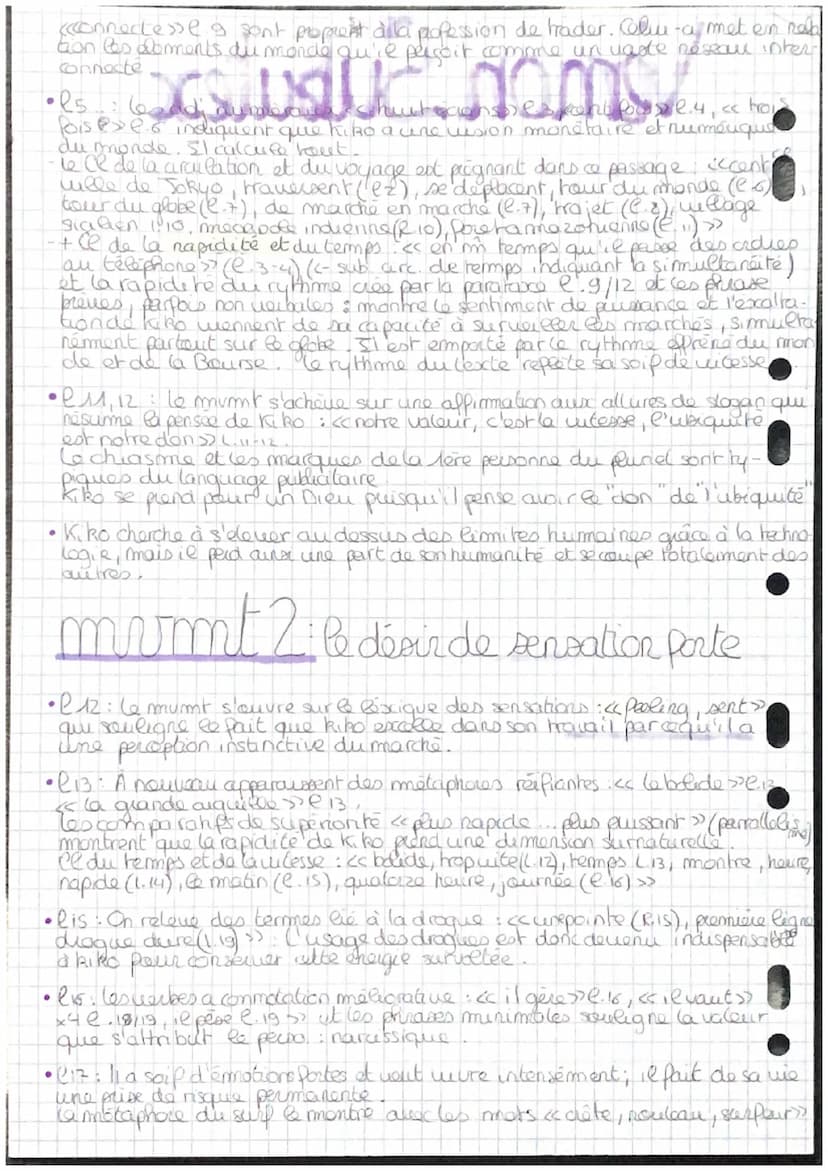 connecte >> l. 9 sont propres à la profession de trader. Celui-ci met en rela
tion les éléments du monde qu'il perçoit comme un vaste réseau inter
connecté
• l 5 : les adj numéraux << huit écrans >> l. 3, << cent fois >> l. 4, << trois
fois >> l. 6 indiquent que Kiko a une vision monétaire et numérique
du monde. Il calcule tout.
- le CL de la circulation et du voyage est prégnant dans ce passage : << centre
ville de Tokyo, traversent (l 2), se déplacent, tour du monde (l. 6),
tour du globe (l. 7), de marché en marché (l. 7), trajet (l. 8), village
sicilien l 10, mégapole indienne (l. 10), forêt amazonienne (l. 11) >>
- + CL de la rapidité et du temps : << en m̂ temps qu'il passe des ordres
au téléphone >> (l. 3-4) (<- sub. circ. de temps indiquant la simultanéité)
et la rapidité du rythme crée par la parataxe l. 9/12 et les phrase
brèves, parfois non verbales : montre le sentiment de puissance et l'exalta-
tion de Kiko viennent de sa capacité à surveiller les marchés, simulta
nément partout sur le globe. Il est emporté par le rythme effréné du mon
de et de la Bourse. le rythme du texte reflète sa soif de vitesse
• l 11, 12 : le mvmt s'achève sur une affirmation aux allures de slogan qui
résume la pensée de Kiko : << notre valeur, c'est la vitesse, l'ubiquité
est notre don >> L. 11-12.
Le chiasme et les marques de la 1ère personne du pluriel sont ty-
piques du language publicitaire
Kiko se prend pour un Dieu puisqu'il pense avoir le "don" de "l'ubiquité"
• Kiko cherche à s'élever au dessus des limites humaines grâce à la techno
logie, mais il perd ainsi une part de son humanité et se coupe totalement des
autres.
mvmt 2 : le désir de sensation forte
• l 12 : Le mvmt s'ouvre sur le lexique des sensations : << feeling, sent >>
qui souligne le fait que kiko excelle dans son travail parce qu'il a
une perception instinctive du marché.
• l 13 : A nouveau apparaissent des métaphores réifiantes : << le bolide >> l. 12
<< la grande aiguille >> l 13.
les comparatifs de supériorité << plus rapide ... plus puissant >> (parrallélisme)
montrent que la rapidité de Kiko prend une dimension surnaturelle.
CL du temps et de la vitesse : << bolide, trop vite (l. 12), temps L 13, montre, heure,
rapide (l. 14), le matin (l. 15), quatorze heure, journée (l. 16) >>
• l 15 : On relève des termes lié à la drogue : << une pointe (l. 15), première ligne
drogue dure (l. 19) >> : L'usage des drogues est donc devenu indispensable
à kiko pour conserver cette énergie survoltée.
• l 16 : les verbes a connotation méliorative : << il gère >> l. 16, << il vaut >>
x4 l. 18/19, il pèse l. 19 >> et les phrases minimales souligne la valeur
que s'attribut le perso : narcissique.
• l 17 : Il a soif d'émotions fortes et veut vivre intensément ; il fait de sa vie
une prise de risque permanente.
La métaphore du surf le montre avec les mots << crête, rouleau, surfeur >>